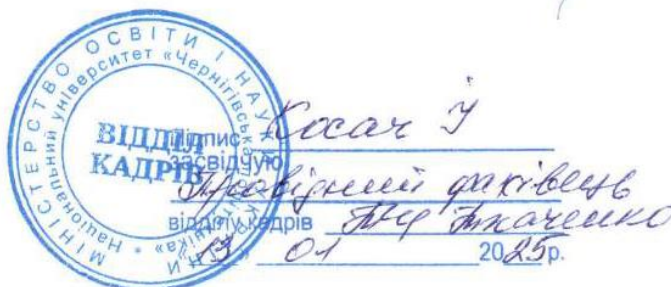 МІНІСТЕРСТВО ОСВІТИ І НАУКИ
Національний університет «Чернігівська політехніка» *
ВІДДІЛ
КАДРІВ
Підпис Косач І
засвідчую
Провідний фахівець
відділу кадрів Ткаченко
13 01 2025р.